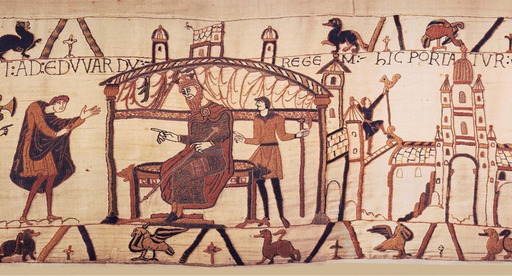 I: AD: EDVVARDV: REGE M:- hIC PORTATVR: